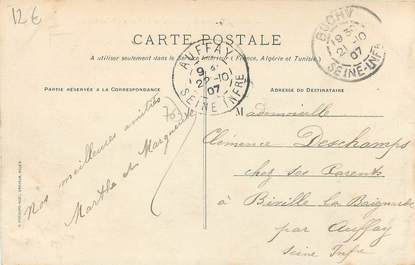 12€
CARTE POSTALE
A utiliser seulement dans le Service Intérieur (France, Algérie et Tunisie)
PARTIE RÉSERVÉE A LA CORRESPONDANCE
ADRESSE DU DESTINATAIRE
AUFFAY
22-10
07
SEINE INFRE
BUCHY
21-10
07
SEINE INFRE
Nos meilleures amitiés
Marthe et Marguerite
Mademoiselle
Clémence Deschamps
chez ses Parents
à Biville la Baignarde
par Auffay
Seine Infre